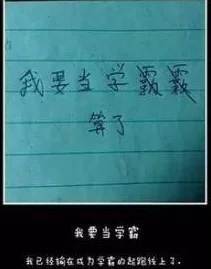 我要当学
算了
我要当学霸
我已经输在成为学霸的起跑线上了.